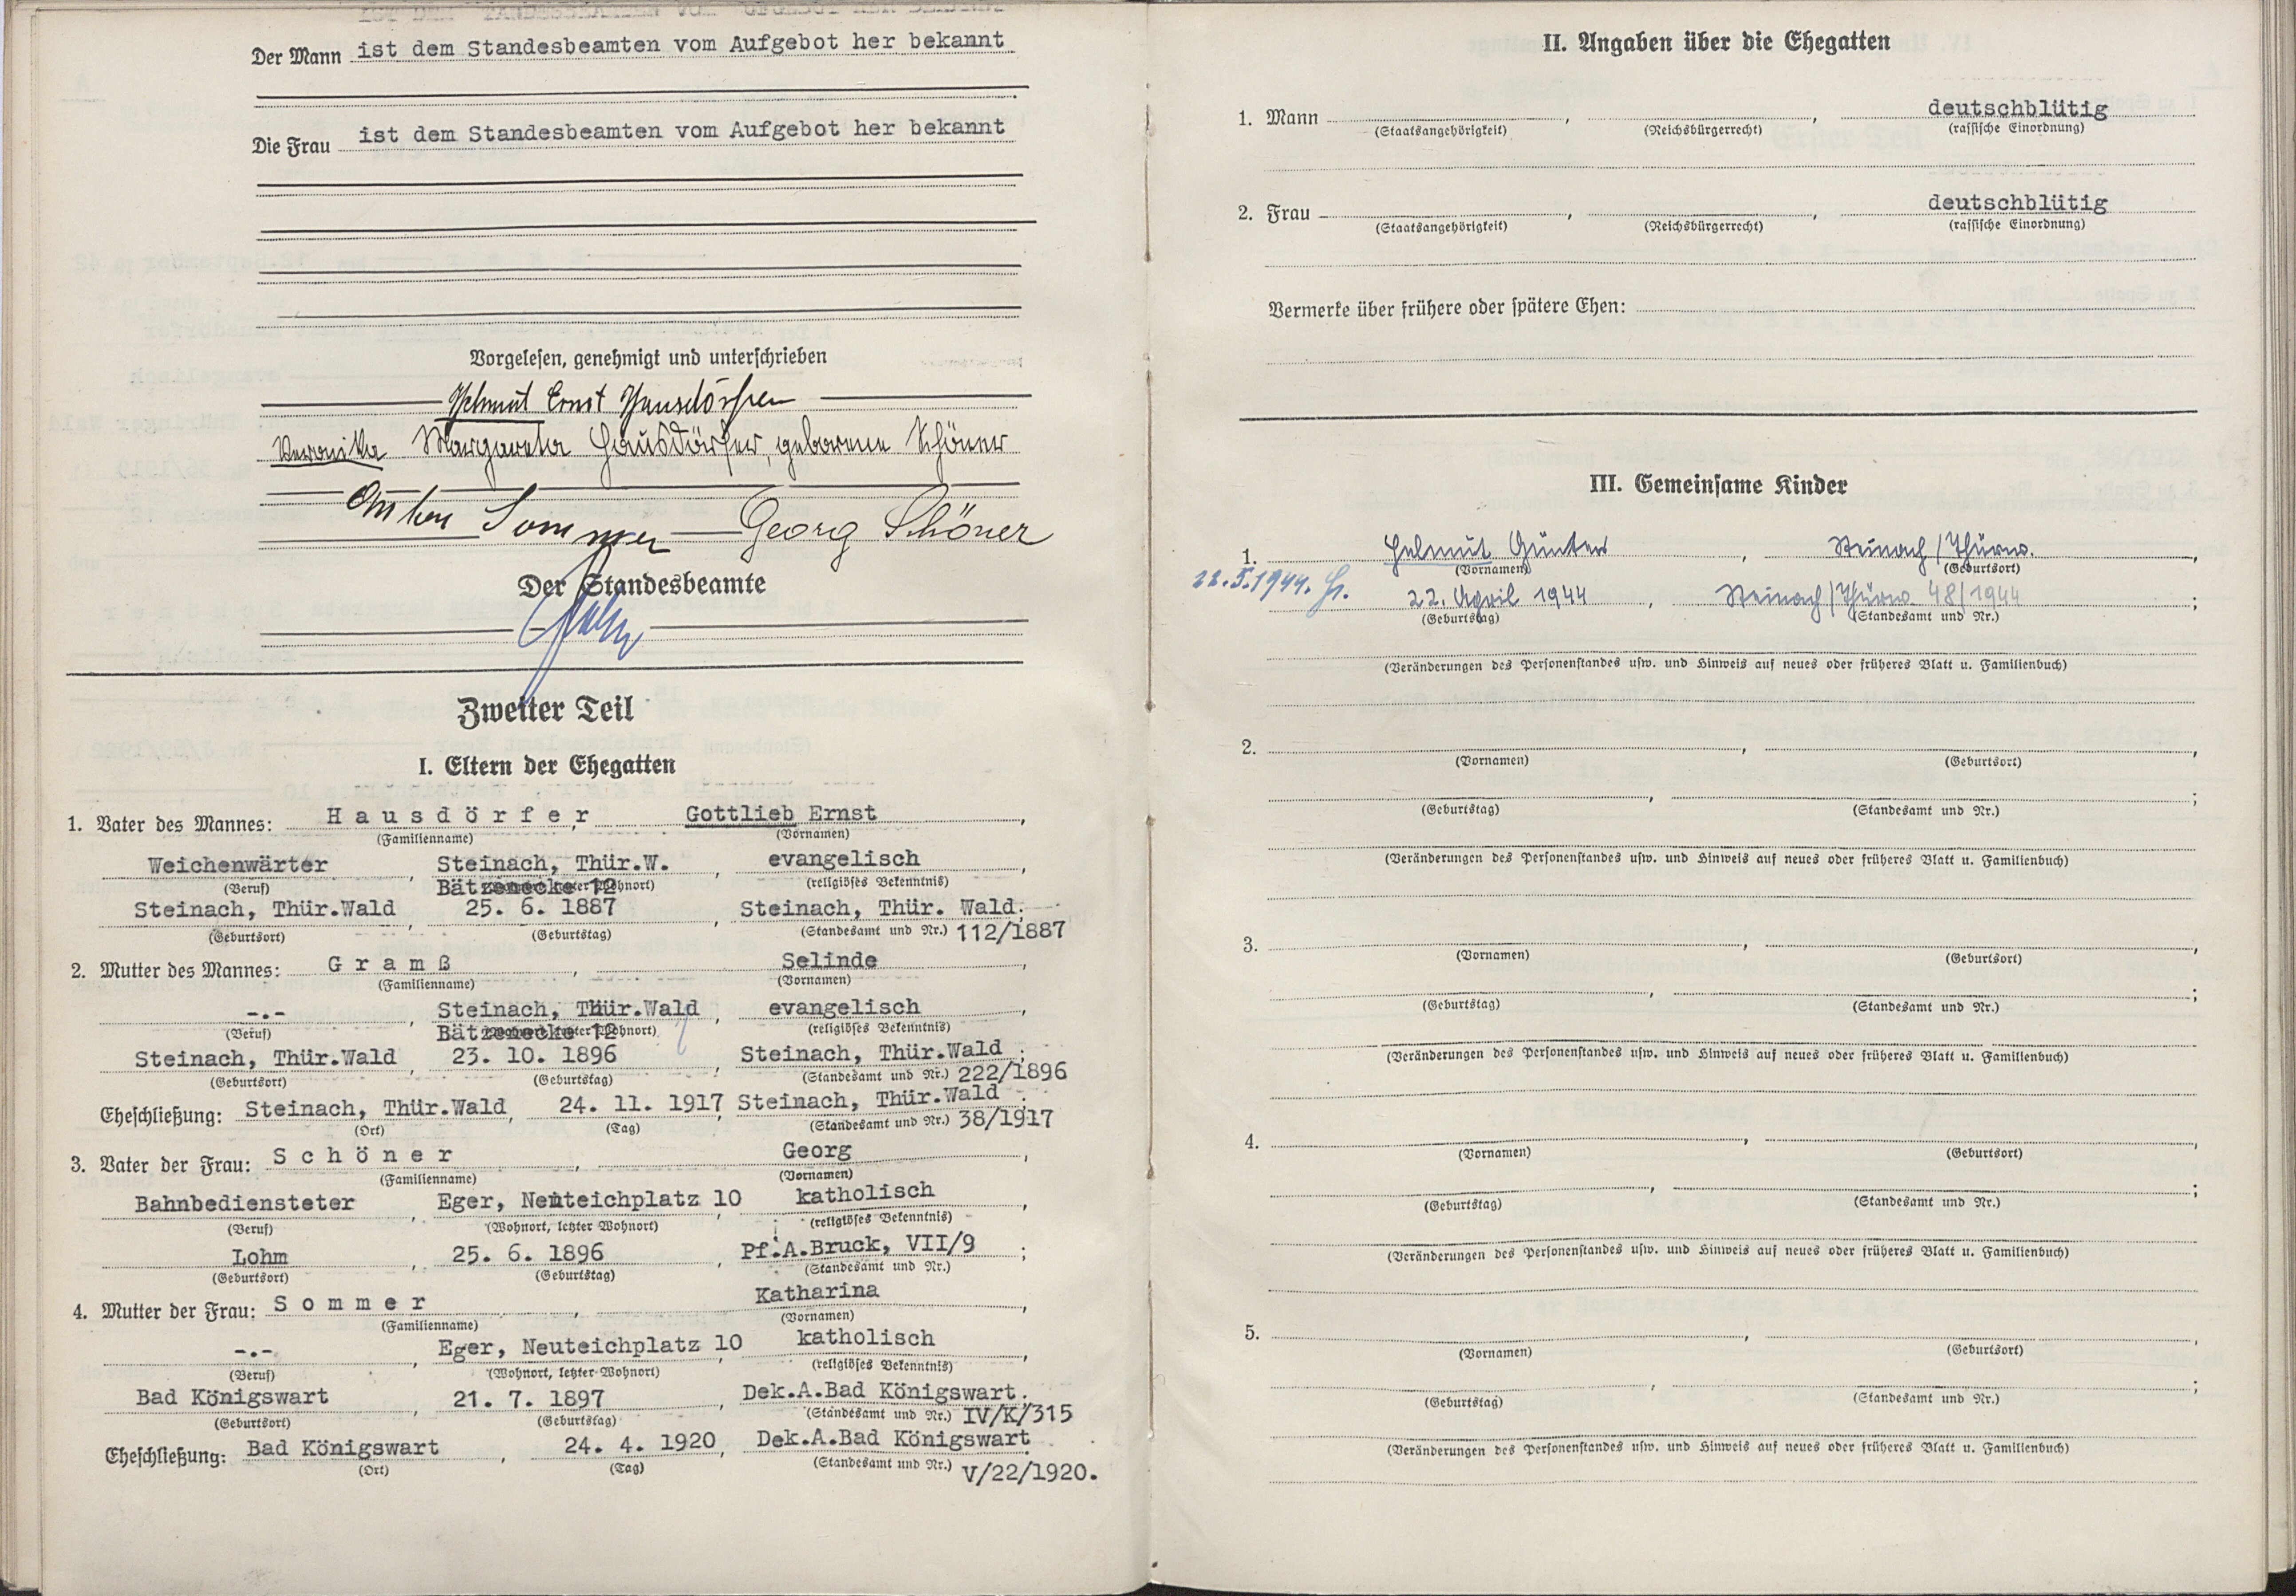 Der Mann ist dem Standesbeamten vom Aufgebot her bekannt
Die Frau ist dem Standesbeamten vom Aufgebot her bekannt
Vorgelesen, genehmigt und unterschrieben
Helmut Ernst Hausdörfer
Veronika Margareta Hausdörfer, geborene Schöner
Anton Sommer Georg Schöner
Der Standesbeamte
Zweiter Teil
I. Eltern der Ehegatten
1. Vater des Mannes: Hausdörfer, Gottlieb Ernst,
(Familienname) (Vornamen)
Weichenwärter, Steinach, Thür.W., evangelisch,
(Beruf) Bätzenecke 12 (religiöses Bekenntnis)
Steinach, Thür.Wald, 25. 6. 1887, Steinach, Thür. Wald;
(Geburtsort) (Geburtstag) (Standesamt und Nr.) 112/1887
2. Mutter des Mannes: Gramß, Selinde,
(Familienname) (Vornamen)
-.-, Steinach, Thür.Wald, evangelisch,
(Beruf) Bätzenecke 12 (religiöses Bekenntnis)
Steinach, Thür.Wald, 23. 10. 1896, Steinach, Thür.Wald;
(Geburtsort) (Geburtstag) (Standesamt und Nr.) 222/1896
Eheschließung: Steinach, Thür.Wald, 24. 11. 1917, Steinach, Thür.Wald.
(Ort) (Tag) (Standesamt und Nr.) 38/1917
3. Vater der Frau: Schöner, Georg,
(Familienname) (Vornamen)
Bahnbediensteter, Eger, Neuteichplatz 10, katholisch,
(Beruf) (Wohnort, letzter Wohnort) (religiöses Bekenntnis)
Lohm, 25. 6. 1896, Pf.A.Bruck, VII/9;
(Geburtsort) (Geburtstag) (Standesamt und Nr.)
4. Mutter der Frau: Sommer, Katharina,
(Familienname) (Vornamen)
-.-, Eger, Neuteichplatz 10, katholisch,
(Beruf) (Wohnort, letzter Wohnort) (religiöses Bekenntnis)
Bad Königswart, 21. 7. 1897, Dek.A.Bad Königswart.
(Geburtsort) (Geburtstag) (Standesamt und Nr.) IV/K/315
Eheschließung: Bad Königswart, 24. 4. 1920, Dek.A.Bad Königswart.
(Ort) (Tag) (Standesamt und Nr.) V/22/1920.
II. Angaben über die Ehegatten
1. Mann , , deutschblütig
(Staatsangehörigkeit) (Reichsbürgerrecht) (rassische Einordnung)
2. Frau , , deutschblütig
(Staatsangehörigkeit) (Reichsbürgerrecht) (rassische Einordnung)
Vermerke über frühere oder spätere Ehen:
III. Gemeinsame Kinder
1. Helmut Günter, Steinach/Thürw.,
(Vornamen) (Geburtsort)
22.5.1944. 22. April 1944, Steinach/Thürw 48/1944;
(Geburtstag) (Standesamt und Nr.)
(Veränderungen des Personenstandes usw. und Hinweis auf neues oder früheres Blatt u. Familienbuch)
2. , ,
(Vornamen) (Geburtsort)
, ;
(Geburtstag) (Standesamt und Nr.)
(Veränderungen des Personenstandes usw. und Hinweis auf neues oder früheres Blatt u. Familienbuch)
3. , ,
(Vornamen) (Geburtsort)
, ;
(Geburtstag) (Standesamt und Nr.)
(Veränderungen des Personenstandes usw. und Hinweis auf neues oder früheres Blatt u. Familienbuch)
4. , ,
(Vornamen) (Geburtsort)
, ;
(Geburtstag) (Standesamt und Nr.)
(Veränderungen des Personenstandes usw. und Hinweis auf neues oder früheres Blatt u. Familienbuch)
5. , ,
(Vornamen) (Geburtsort)
, ;
(Geburtstag) (Standesamt und Nr.)
(Veränderungen des Personenstandes usw. und Hinweis auf neues oder früheres Blatt u. Familienbuch)